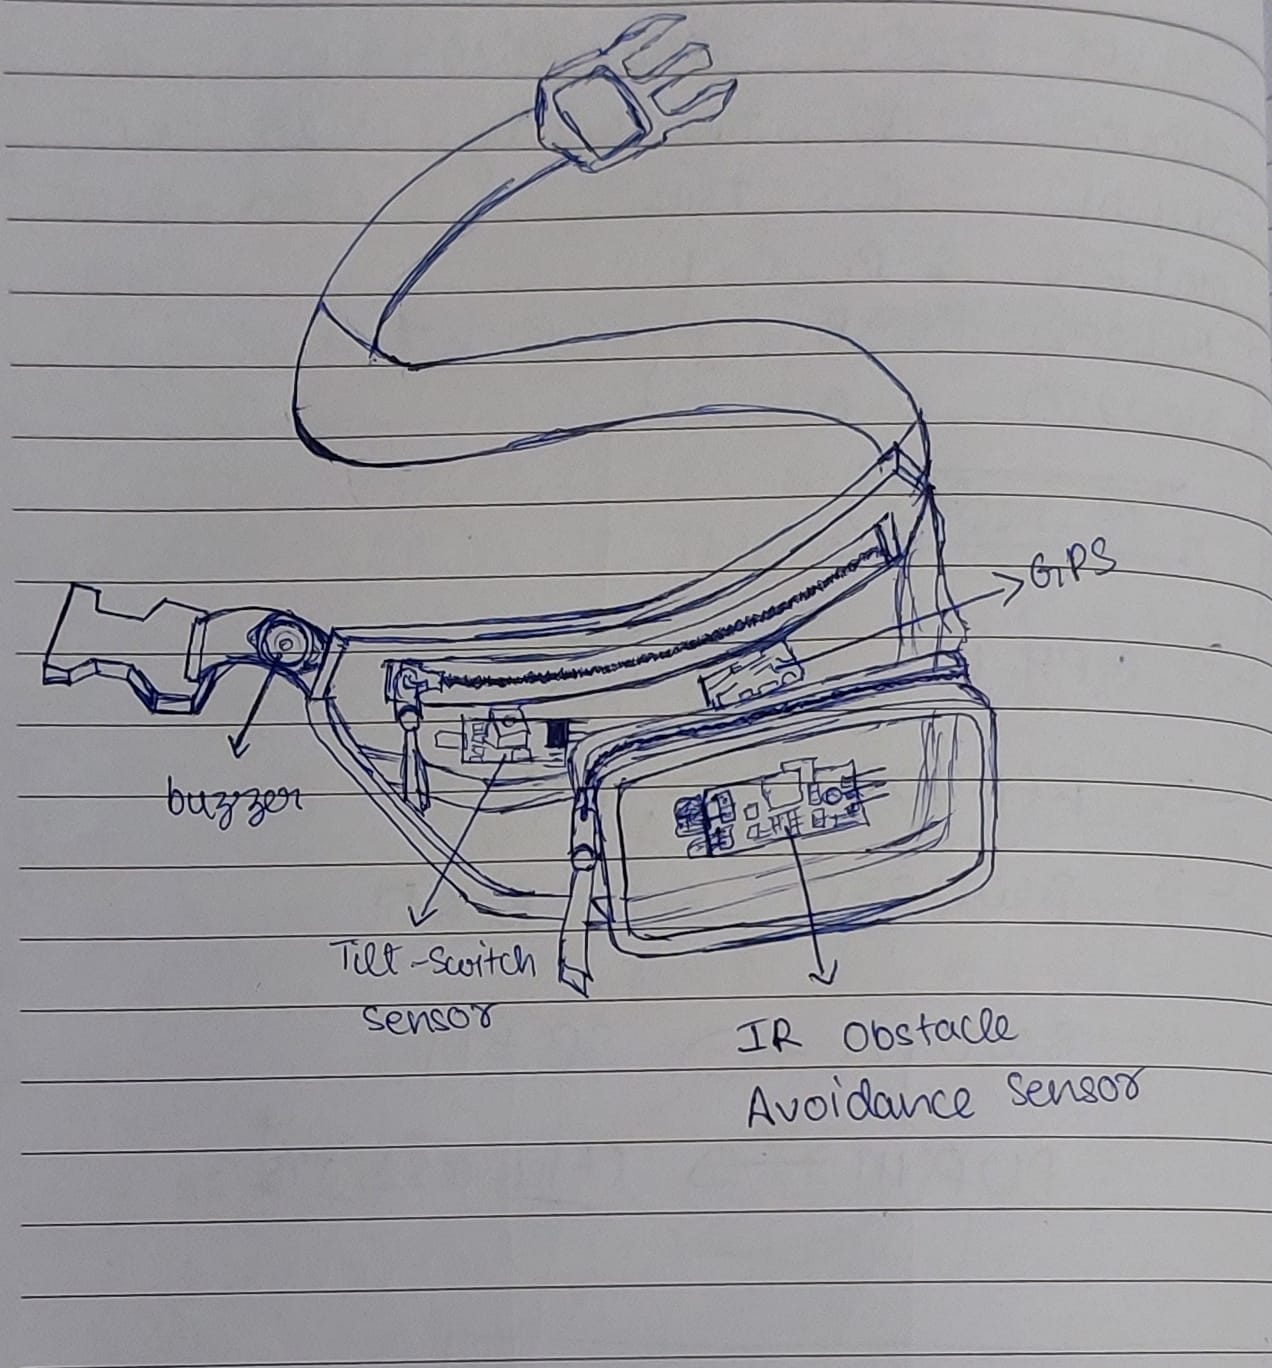 GPS
buzzer
Tilt-Switch
Sensor
IR Obstacle
Avoidance Sensor